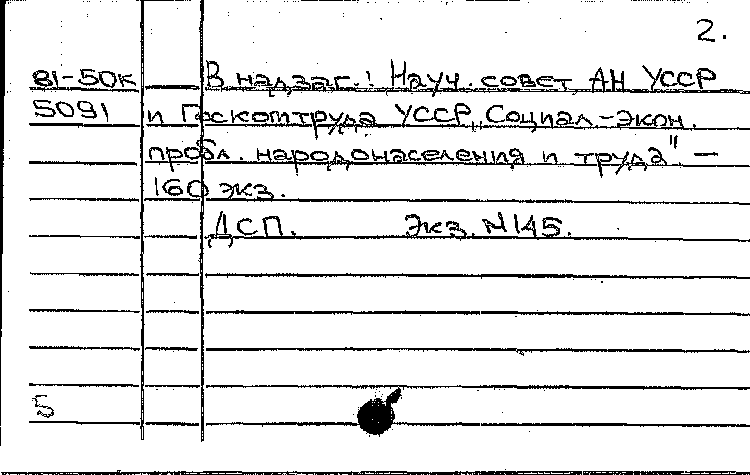 2.
81-50к В надзаг.: Науч. совет АН УССР
5091 и Госкомтруда УССР „Социал-экон.
пробл. народонаселения и труда" —
160 экз.
ДСП. Экз. N145.
5